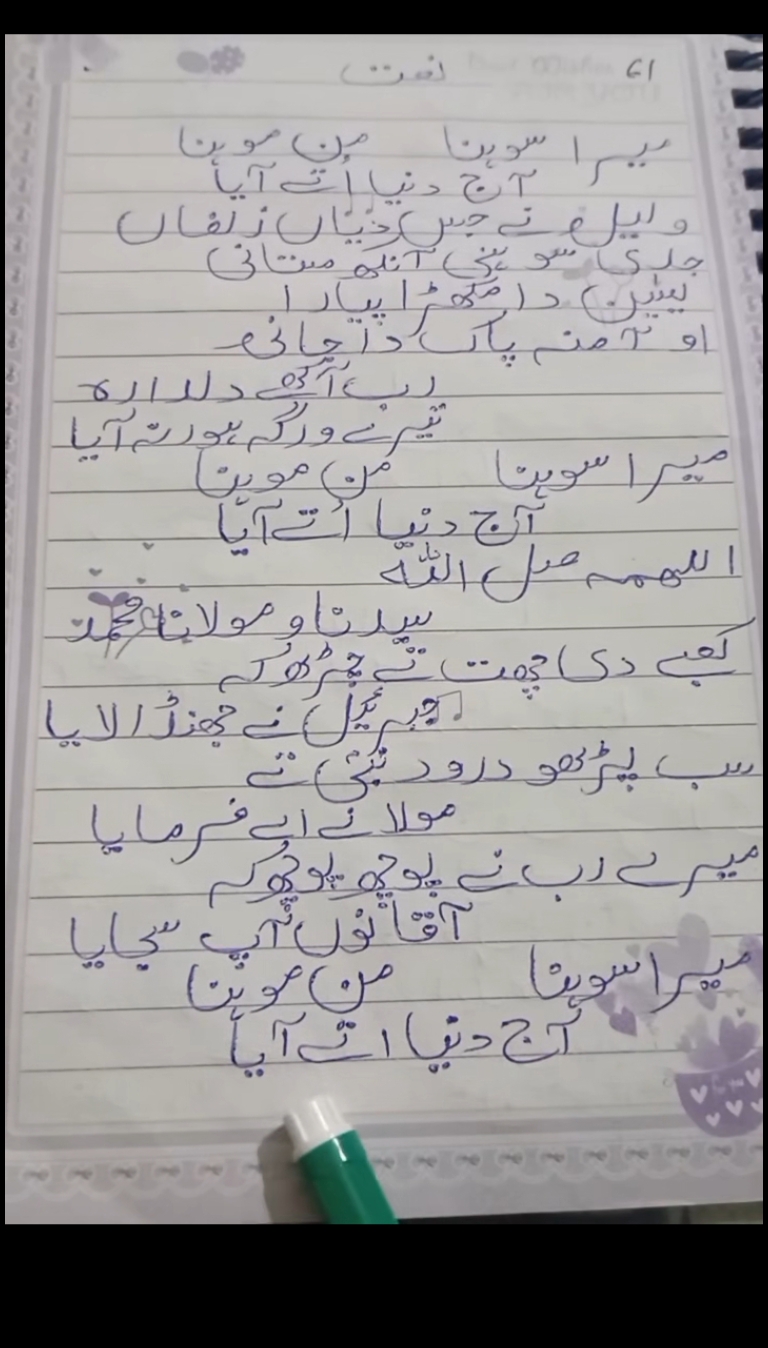 61 نعت
میرا سوہنا من موہنا
آج دنیا اُتے آیا
ولیل نے جس دیاں زلفاں
جدی سوہنی آنکھ مستانی
یٰسین دا مکھڑا پیارا
او آمنہ پاک دا جانی
رب آکھے دلدارہ
تیرے ورگہ ہور نہ آیا
میرا سوہنا من موہنا
آج دنیا اُتے آیا
اللھمہ صل اللہ
سیدنا و مولانا محمد
کعبے دی چھت تے چڑھ کہ
جبرئیل نے جھنڈا لایا
سب پڑھو درود نبی تے
مولا نے اے فرمایا
میرے رب نے پوچھ پوچھ کہ
آقا نوں آپ سجایا
میرا سوہنا من موہنا
آج دنیا اتے آیا